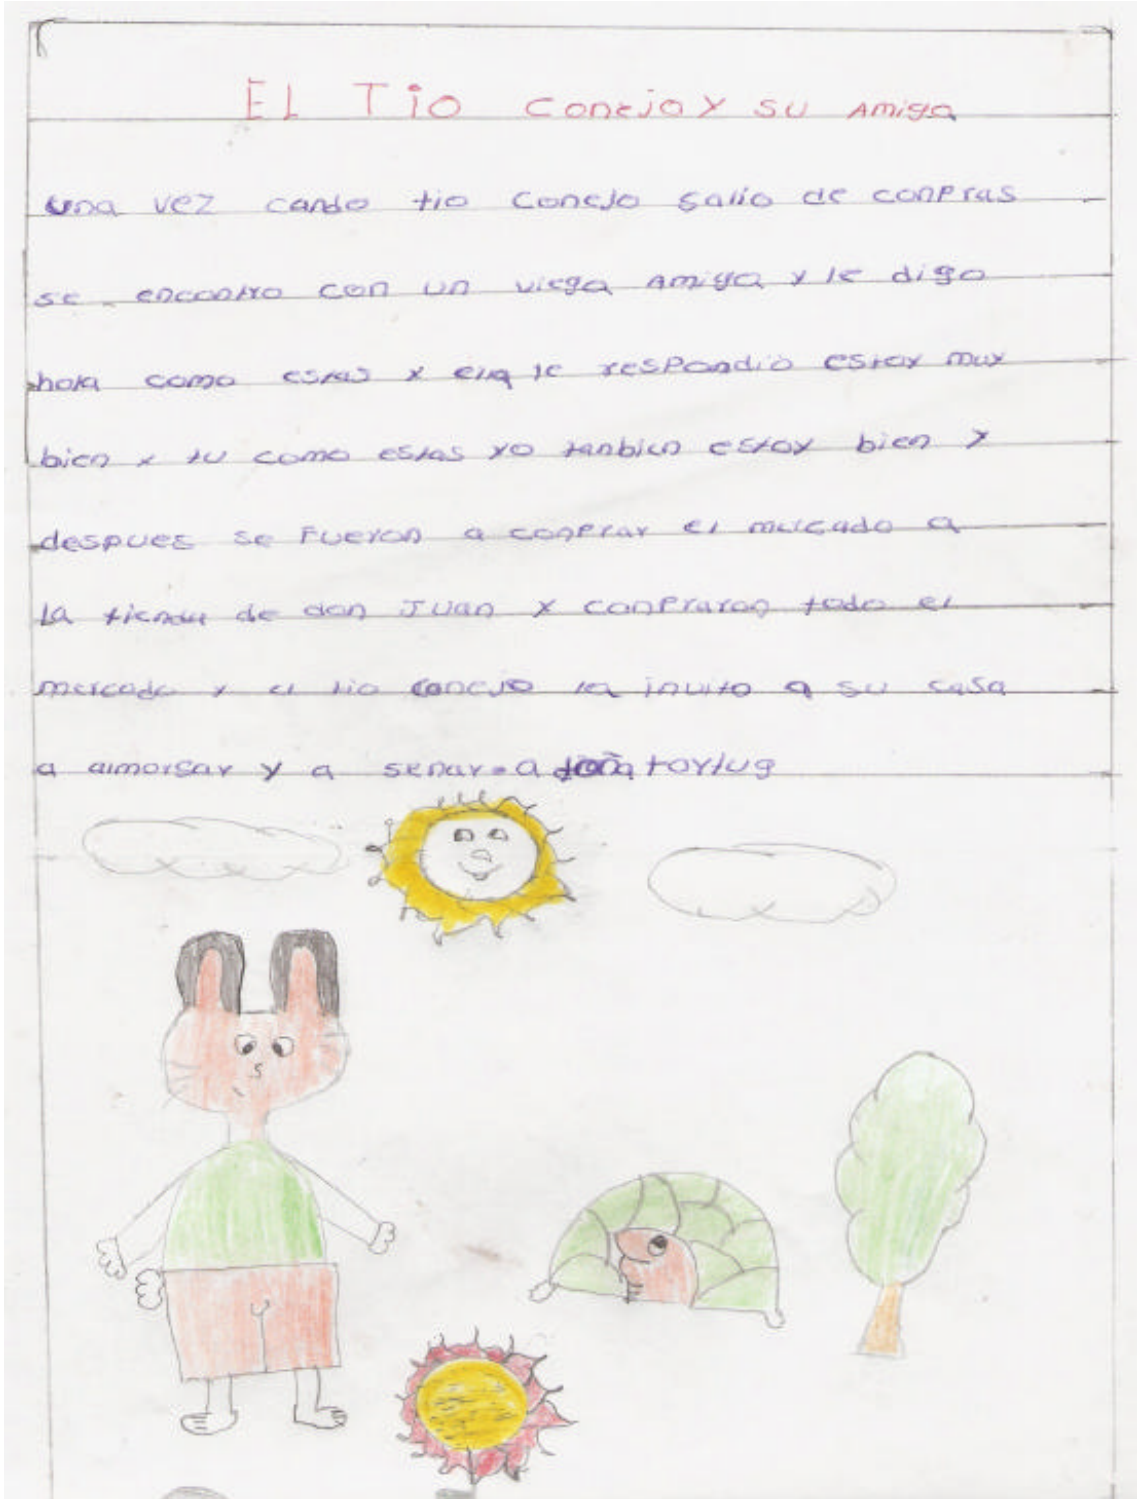 EL Tio conejo y su Amiga
una vez cando tio conejo salio de conpras
se encontro con un viega Amiga y le digo
hola como estas y ella le respondio estoy muy
bien y tu como estas yo tanbien estoy bien y
despues se fueron a conprar el mercado a
la tienda de don Juan y conpraron todo el
mercado y el tio conejo la invito a su casa
a almorsar y a senar a doña tortug